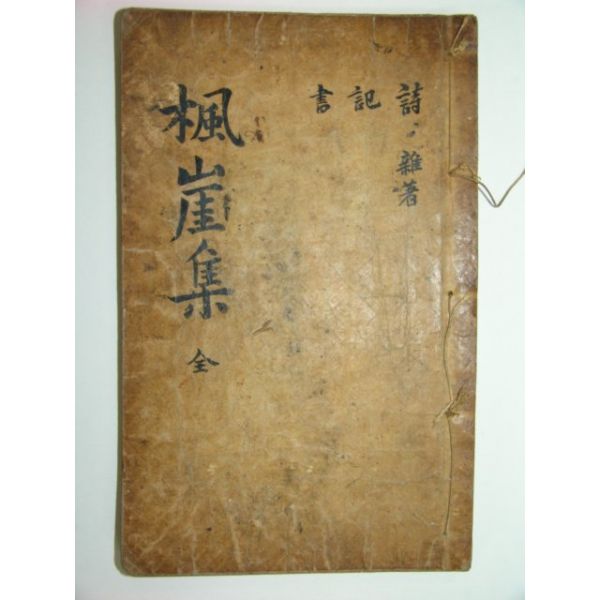 詩、雜著
記
書
楓崖集 全